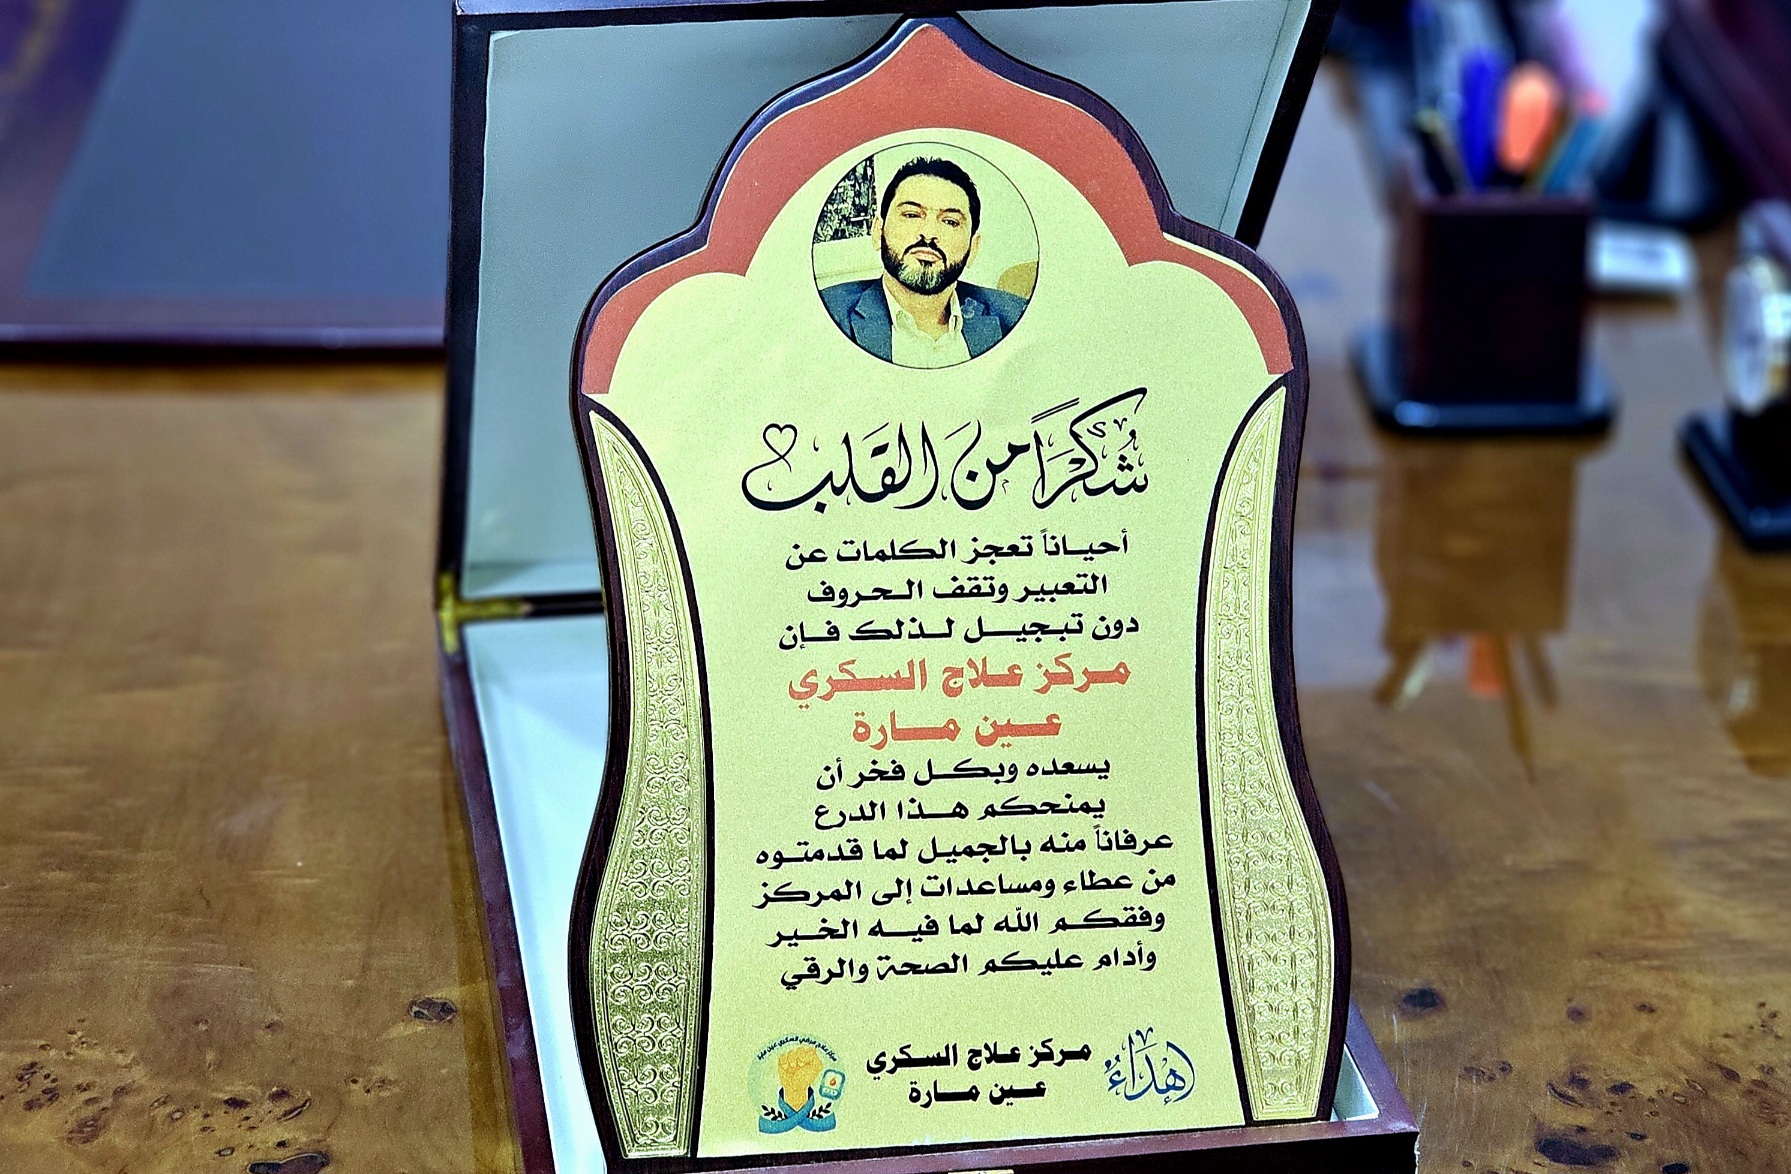 شُكْرَاً مِنَ القَلب
أحياناً تعجز الكلمات عن
التعبير وتقف الحروف
دون تبجيل لذلك فإن
مركز علاج السكري
عين مارة
يسعده وبكل فخر أن
يمنحكم هذا الدرع
عرفاناً منه بالجميل لما قدمتوه
من عطاء ومساعدات إلى المركز
وفقكم الله لما فيه الخير
وأدام عليكم الصحة والرقي
إهدَاءُ
مركز علاج السكري
عين مارة
مركز علاج مرضى السكري عين مارة